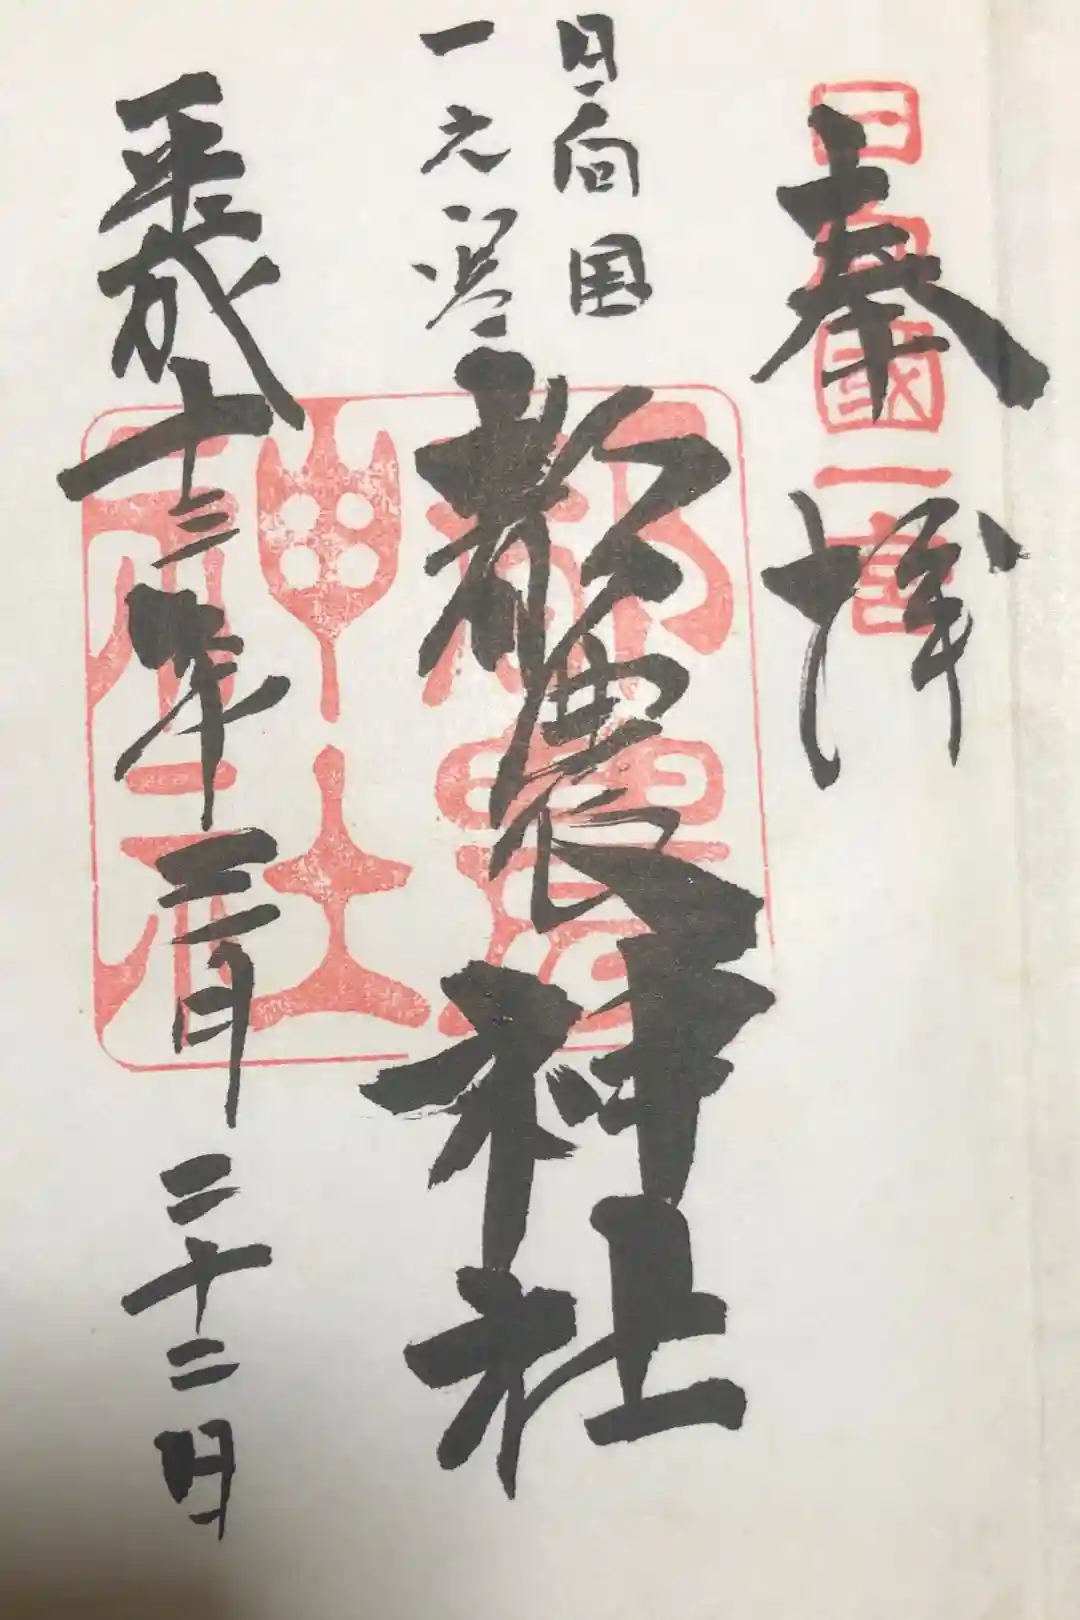 奉拝
日向国一宮
日向国
一之宮
都農神社
都農神社
平成十二年三月二十二日